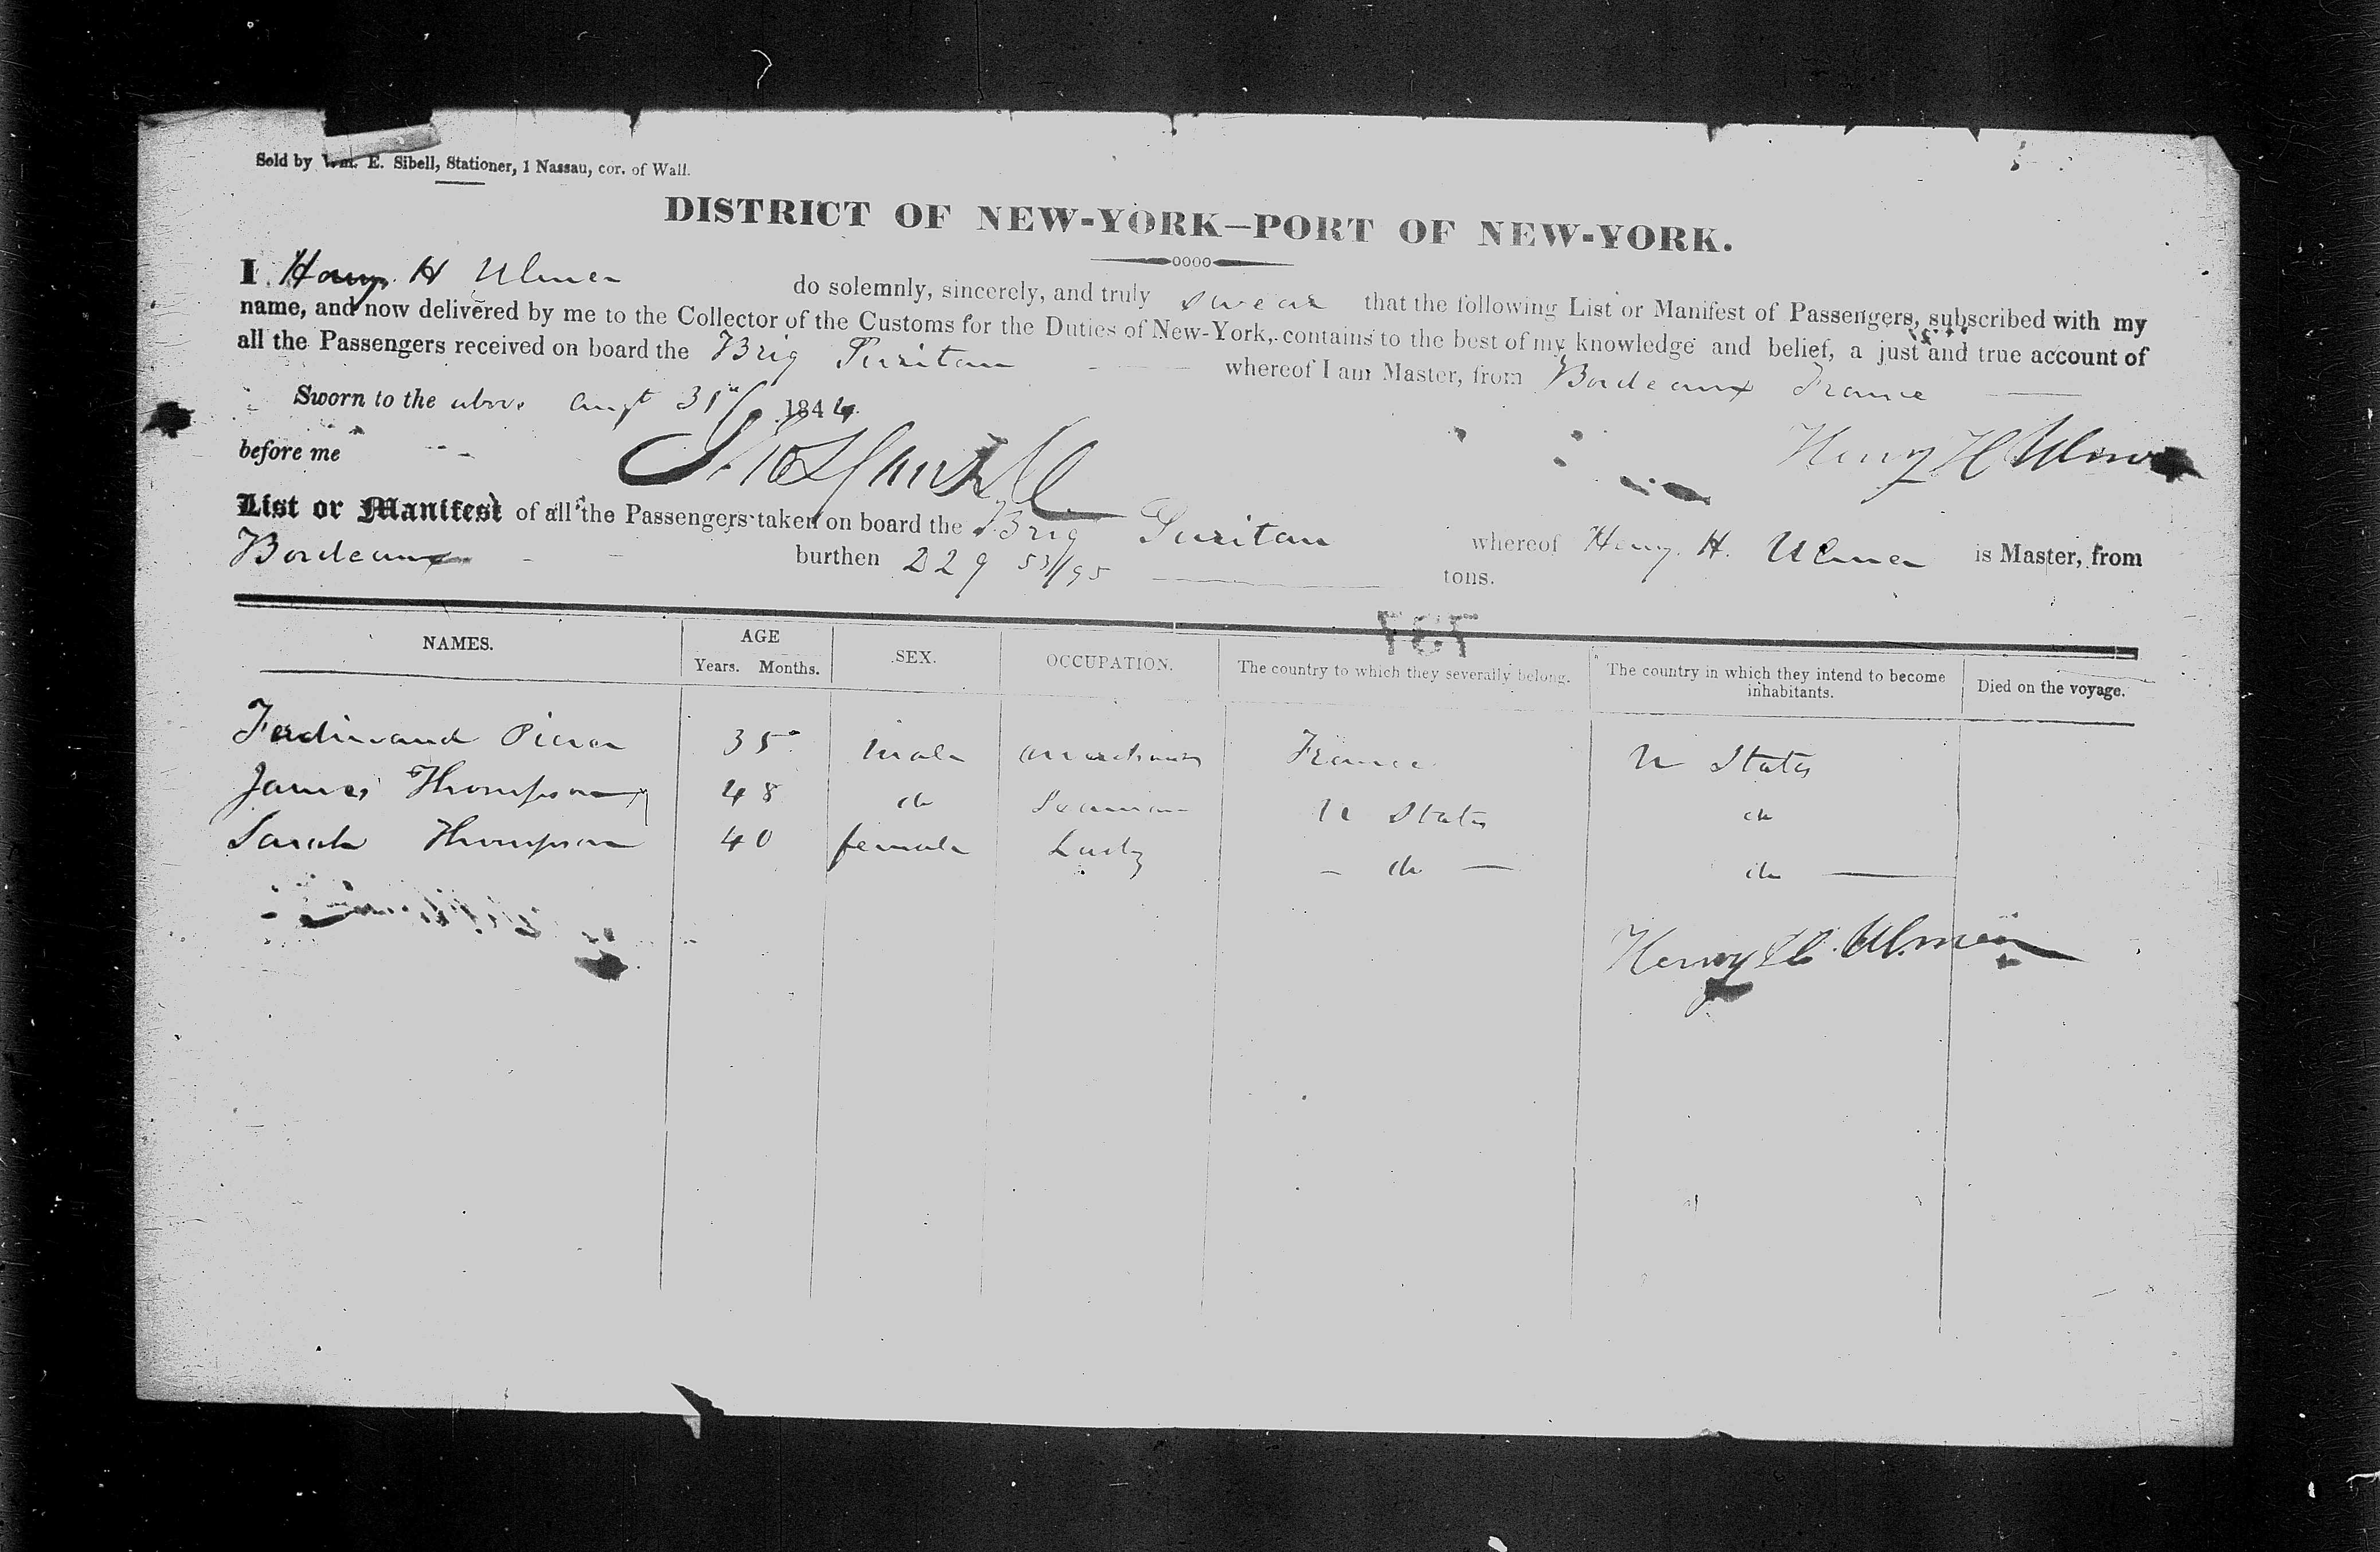 Sold by Wm. E. Sibell, Stationer, 1 Nassau, cor. of Wall.
DISTRICT OF NEW-YORK—PORT OF NEW-YORK.
I, Henry H Ulmer do solemnly, sincerely, and truly swear that the following List or Manifest of Passengers, subscribed with my
name, and now delivered by me to the Collector of the Customs for the Duties of New-York, contains to the best of my knowledge and belief, a just and true account of
all the Passengers received on board the Brig Puritan whereof I am Master, from Bordeaux France
Sworn to the above Augt 31st 1844.
before me Henry H Ulmer
List or Manifest of all the Passengers taken on board the Brig Puritan whereof Henry H. Ulmer is Master, from
Bordeaux burthen 229 53/95 tons.
737
NAMES. AGE Years. Months. SEX. OCCUPATION. The country to which they severally belong. The country in which they intend to become inhabitants. Died on the voyage.
Ferdinand 35 male France U States
James Thompson 48 do Seaman U States do
Sarah Thompson 40 female Lady - do - do
Henry H. Ulmer